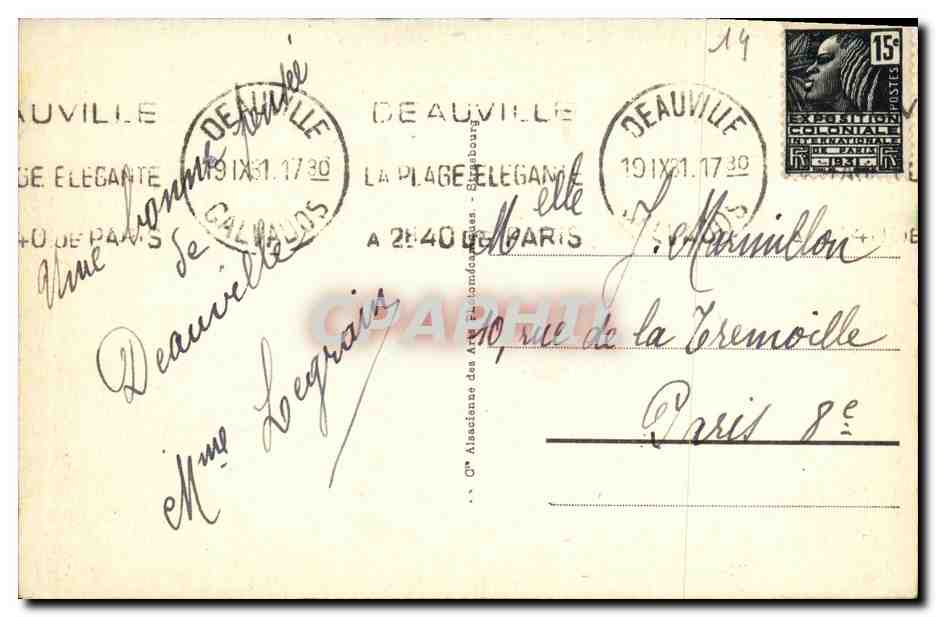 14
15c
POSTES
EXPOSITION
COLONIALE
INTERNATIONALE
DE PARIS
1931
AUVILLE
GE ELEGANTE
40 DE PARIS
DEAUVILLE
19 IX 31. 17 30
CALVADOS
DEAUVILLE
LA PLAGE ELEGANTE
A 2H40 DE PARIS
DEAUVILLE
19 IX 31. 17 30
CALVADOS
Une bonne pensée
de
Deauville
Mme Legrain
Cie Alsacienne des Arts Photomécaniques. - Strasbourg
Melle J. Marmillon
10, rue de la Tremoille
Paris 8e
CPAPHIL